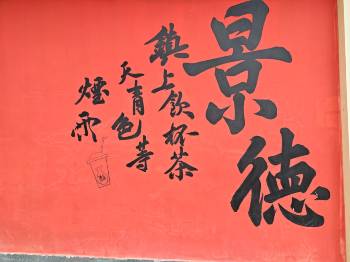 景德
鎮上飲杯茶
天青色等
煙雨